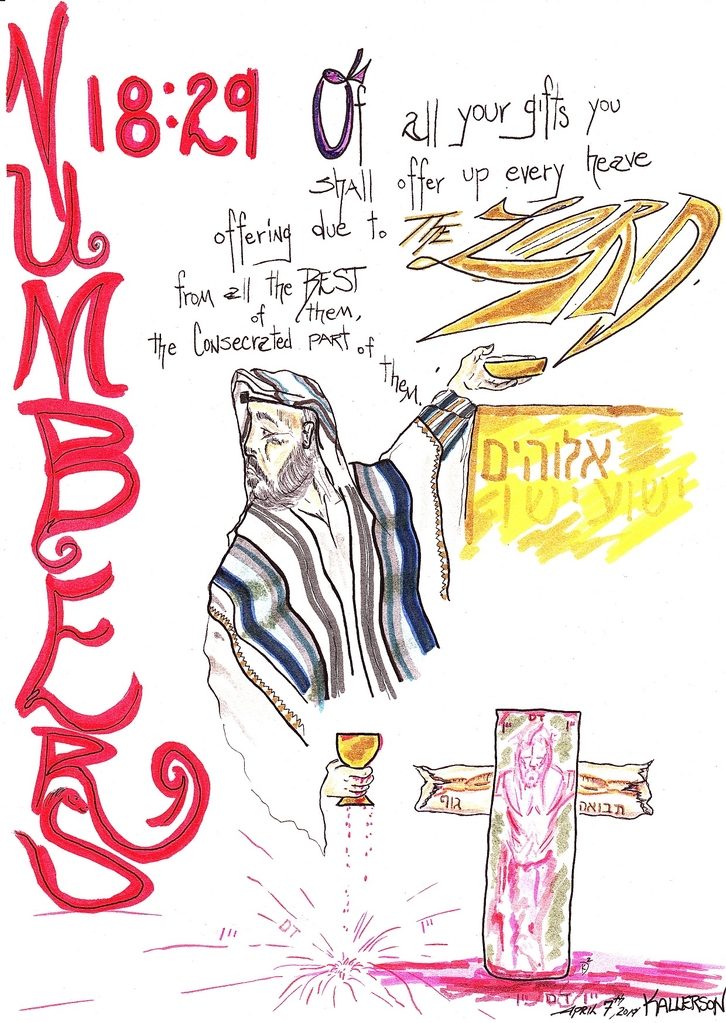 NUMBERS 18:29
Of all your gifts you
shall offer up every heave
offering due to THE LORD
from all the BEST
of them,
the Consecrated PART of
them.
אלוהים
ישוע ישו
יין דם יין
גוף תבואה
יין דם יין
יין דם יין
APRIL 7TH KALLERSON